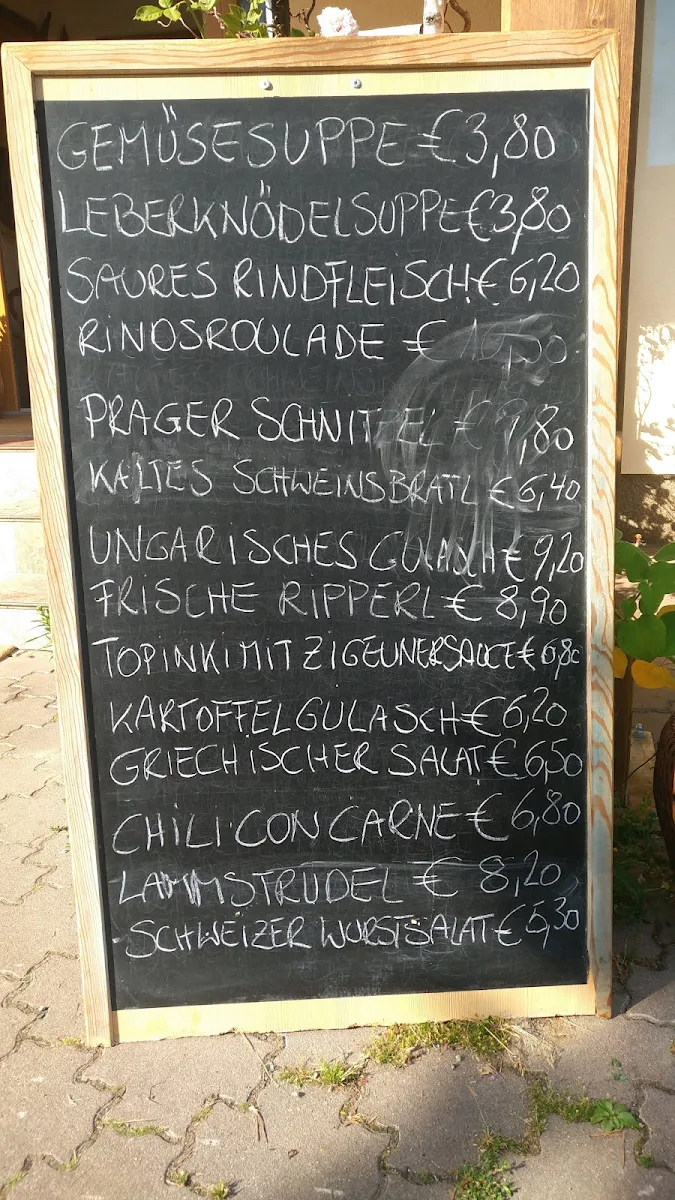 GEMÜSESUPPE €3,80
LEBERKNÖDELSUPPE €3,80
SAURES RINDFLEISCH €6,20
RINDSROULADE €
PRAGER SCHNITZEL € 9,80
KALTES SCHWEINSBRATL € 6,40
UNGARISCHES GULASCH € 9,20
FRISCHE RIPPERL € 8,90
TOPINKI MIT ZIGEUNERSAUCE € 6,80
KARTOFFELGULASCH €6,20
GRIECHISCHER SALAT €6,50
CHILI CON CARNE €6,80
LAMMSTRUDEL € 8,20
SCHWEIZER WURSTSALAT €5,30